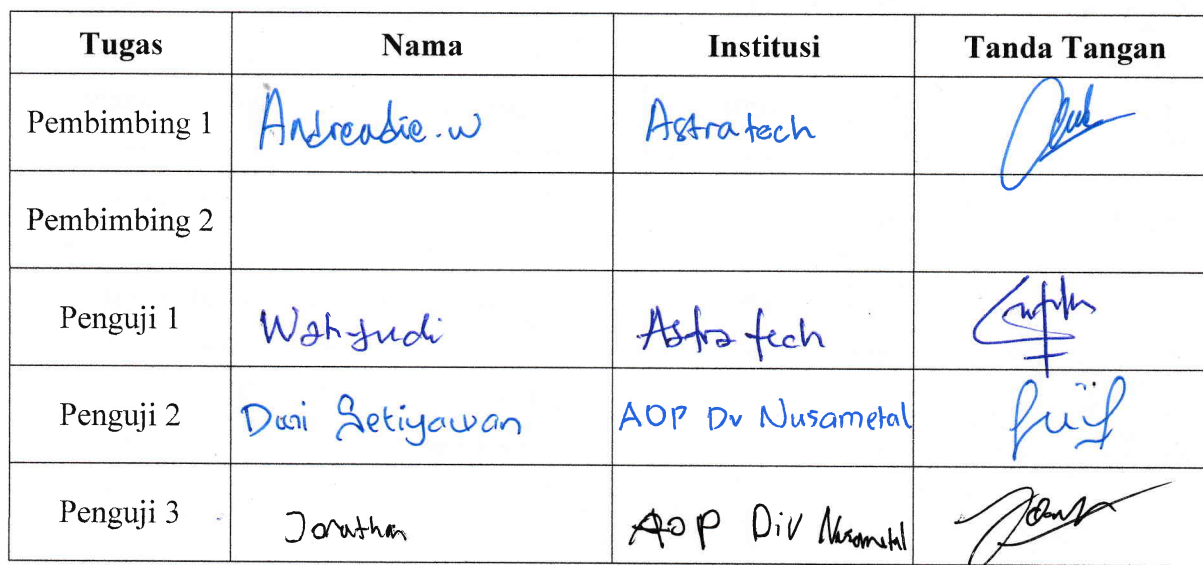 Tugas Nama Institusi Tanda Tangan
Pembimbing 1 Andreadie.w Astratech
Pembimbing 2
Penguji 1 Wahyudi Astratech
Penguji 2 Setiyawan AOP Dv Nusametal
Penguji 3 Jonathan AOP Div Nusametal